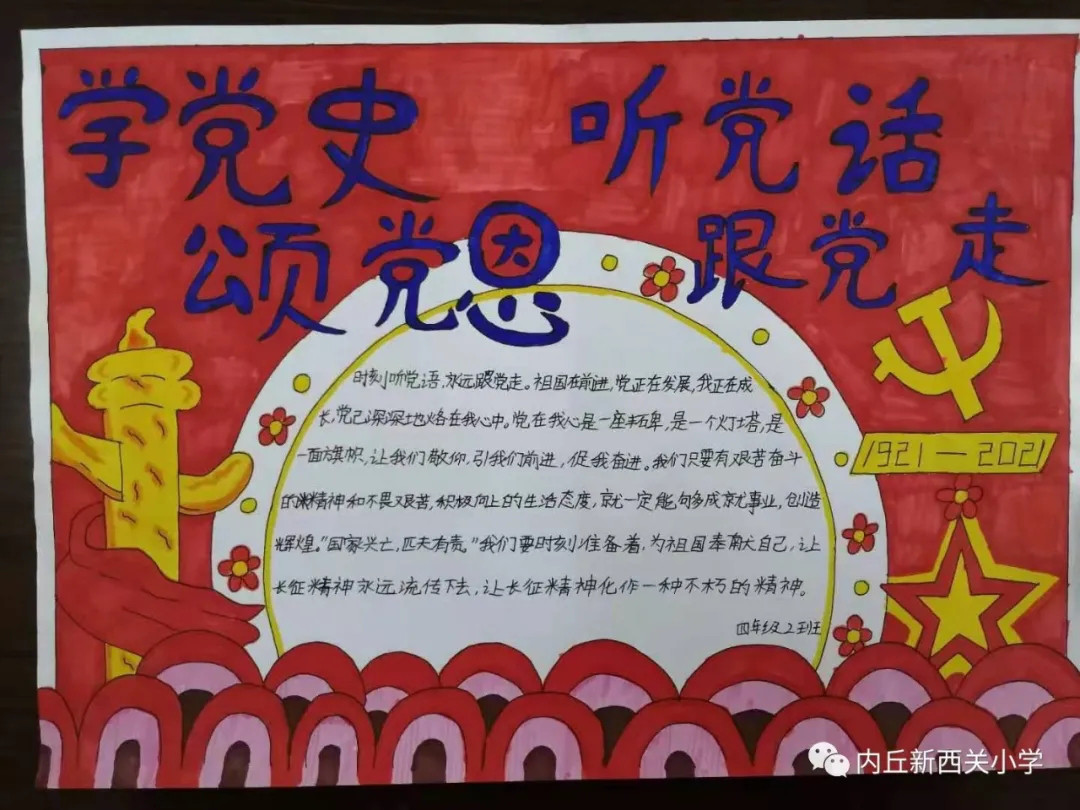 学党史 听党话
颂党恩 跟党走
1921—2021
时刻听党语,永远跟党走。祖国在前进,党正在发展,我正在成
长,党已深深地烙在我心中。党在我心是一座丰碑,是一个灯塔,是
一面旗帜,让我们敬仰,引我们前进,促我奋进。我们只要有艰苦奋斗
的精神和不畏艰苦,积极向上的生活态度,就一定能够多成就事业,创造
辉煌。"国家兴亡,匹夫有责。"我们要时刻准备着,为祖国奉献自己,让
长征精神永远流传下去,让长征精神化作一种不朽的精神。
四年级2班
内丘新西关小学